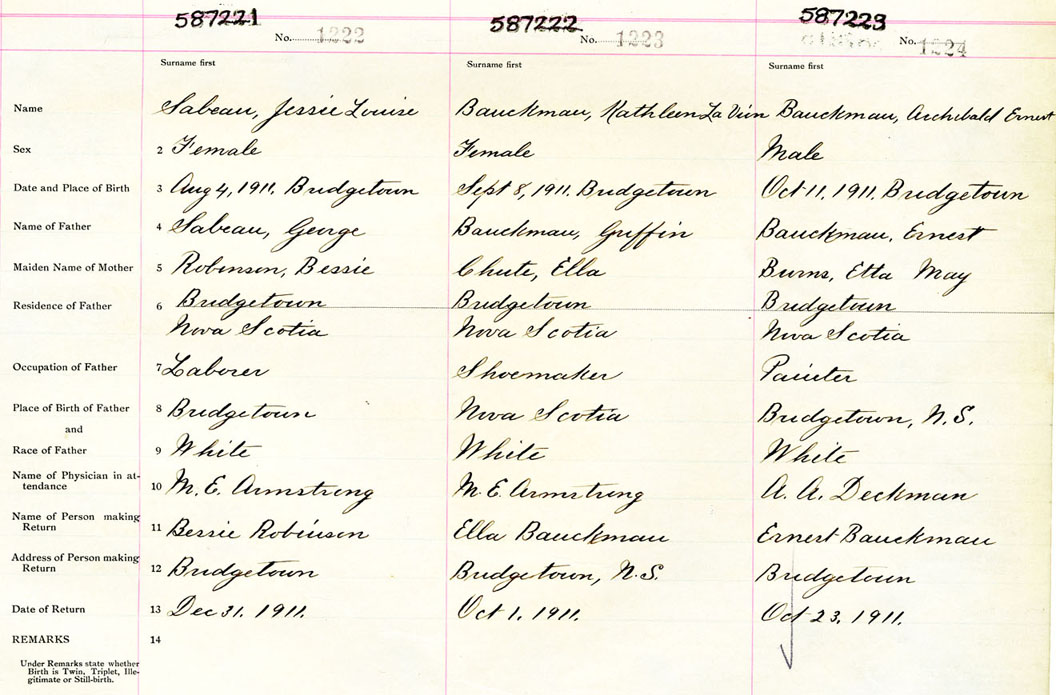 587221 587222 587223
No. 1222 No. 1223 No. 1224
Surname first Surname first Surname first
Name Sabeau, Jessie Louise Bauckman, Kathleen La Vion Bauckman, Archibald Ernest
Sex 2 Female Female Male
Date and Place of Birth 3 Aug 4, 1911. Bridgetown Sept 8, 1911. Bridgetown Oct 11, 1911. Bridgetown
Name of Father 4 Sabeau, George Bauckman, Griffin Bauckman, Ernest
Maiden Name of Mother 5 Robinson, Bessie Chute, Ella Burns, Etta May
Residence of Father 6 Bridgetown Bridgetown Bridgetown
Nova Scotia Nova Scotia Nova Scotia
Occupation of Father 7 Laborer Shoemaker Painter
Place of Birth of Father 8 Bridgetown Nova Scotia Bridgetown, N.S.
and
Race of Father 9 White White White
Name of Physician in at-
tendance 10 M. E. Armstrong M. E. Armstrong A. A. Deckman
Name of Person making
Return 11 Bessie Robinson Ella Bauckman Ernest Bauckman
Address of Person making
Return 12 Bridgetown Bridgetown, N.S. Bridgetown
Date of Return 13 Dec 31, 1911. Oct 1, 1911. Oct 23, 1911.
REMARKS 14
Under Remarks state whether
Birth is Twin, Triplet, Ille-
gitimate or Still-birth.